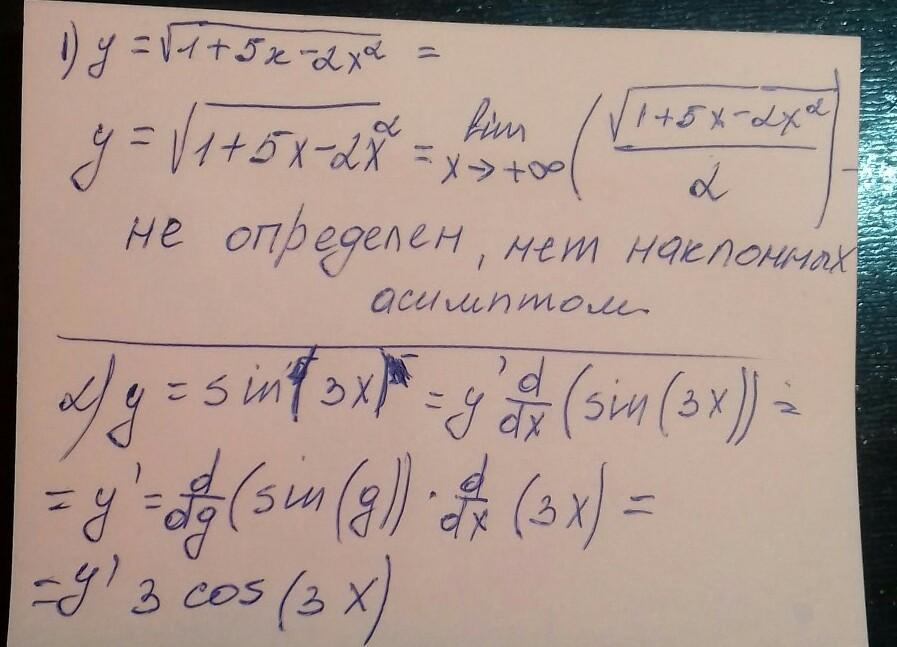 1) y = √1+5x-2x² =
y = √1+5x-2x² = lim x→+∞ (√1+5x-2x² / 2) -
не определен, нет наклонных
асимптот
2) y = sin(3x) = y' d/dx (sin(3x)) =
= y' = d/dg (sin(g)) · d/dx (3x) =
= y' 3 cos(3x)